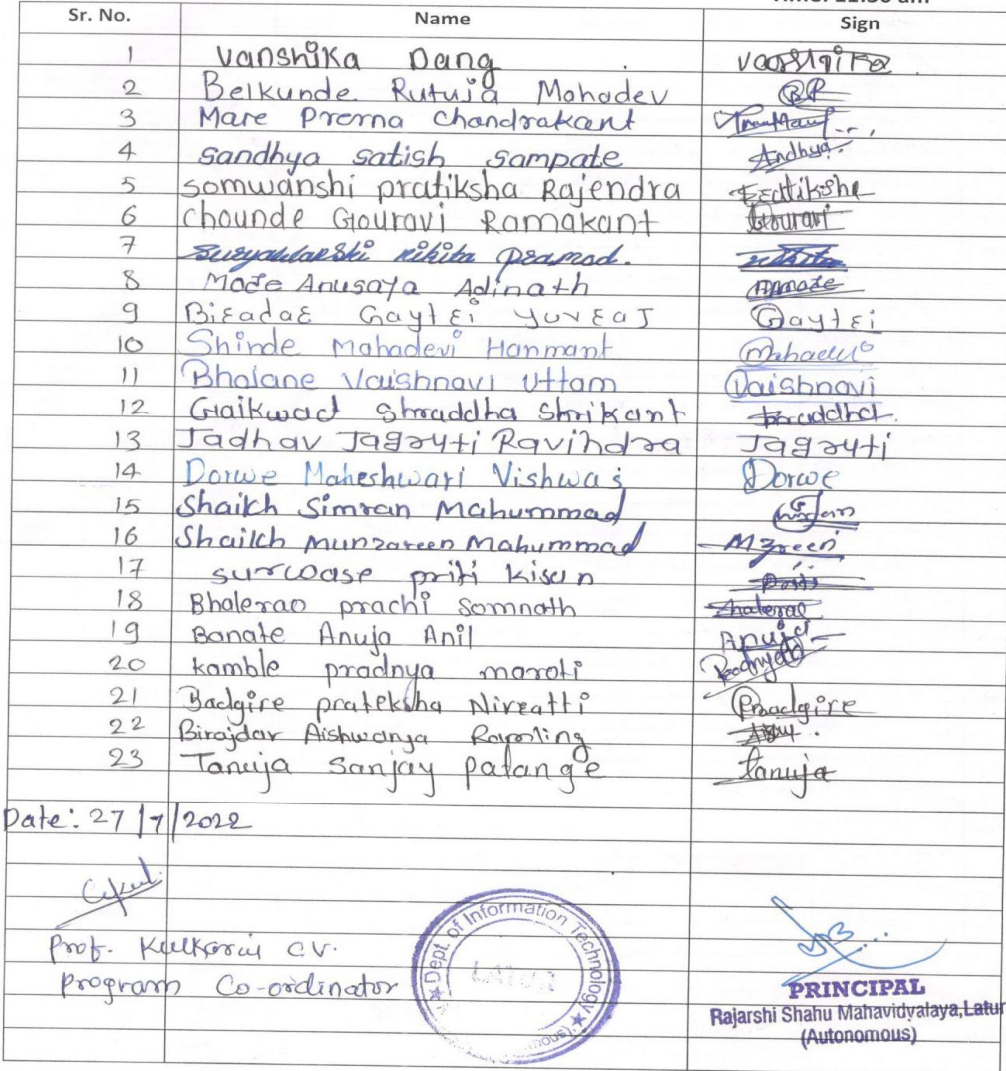 Time: 11:30 am
Sr. No. Name Sign
1 Vanshika Dang Vanshika
2 Belkunde Rutuja Mahadev BR
3 Mare Prerna Chandrakant
4 Sandhya satish sampate Sandhya
5 somwanshi pratiksha Rajendra Pratiksha
6 chounde Gouravi Ramakant Gouravi
7 Suryawanshi nikita Pramod. nikita
8 Mode Anusaya Adinath
9 Biradar Gaytri yuvraj Gaytri
10 Shinde Mahadevi Hanmant Mahadevi
11 Bhalane Vaishnavi Uttam Vaishnavi
12 Gaikwad Shraddha Shrikant Shraddha
13 Jadhav Jagruti Ravindra Jagruti
14 Dorwe Maheshwari Vishwas Dorwe
15 Shaikh Simran Mahummad
16 Shaikh Munzareen Mahummad Mzreen
17 surwase priti kisan Priti
18 Bhalerao prachi Somnath Bhalerao
19 Banate Anuja Anil Anuja
20 kamble pradnya maroti Pradnya
21 Badgire prateksha Nivratti Badgire
22 Birajdar Aishwarya Ramling
23 Tanuja Sanjay patange tanuja
Date: 27/7/2022
Prof. Kulkarni C.V.
Program Co-ordinator
Dept. of Information Technology
LATUR
PRINCIPAL
Rajarshi Shahu Mahavidyalaya, Latur
(Autonomous)